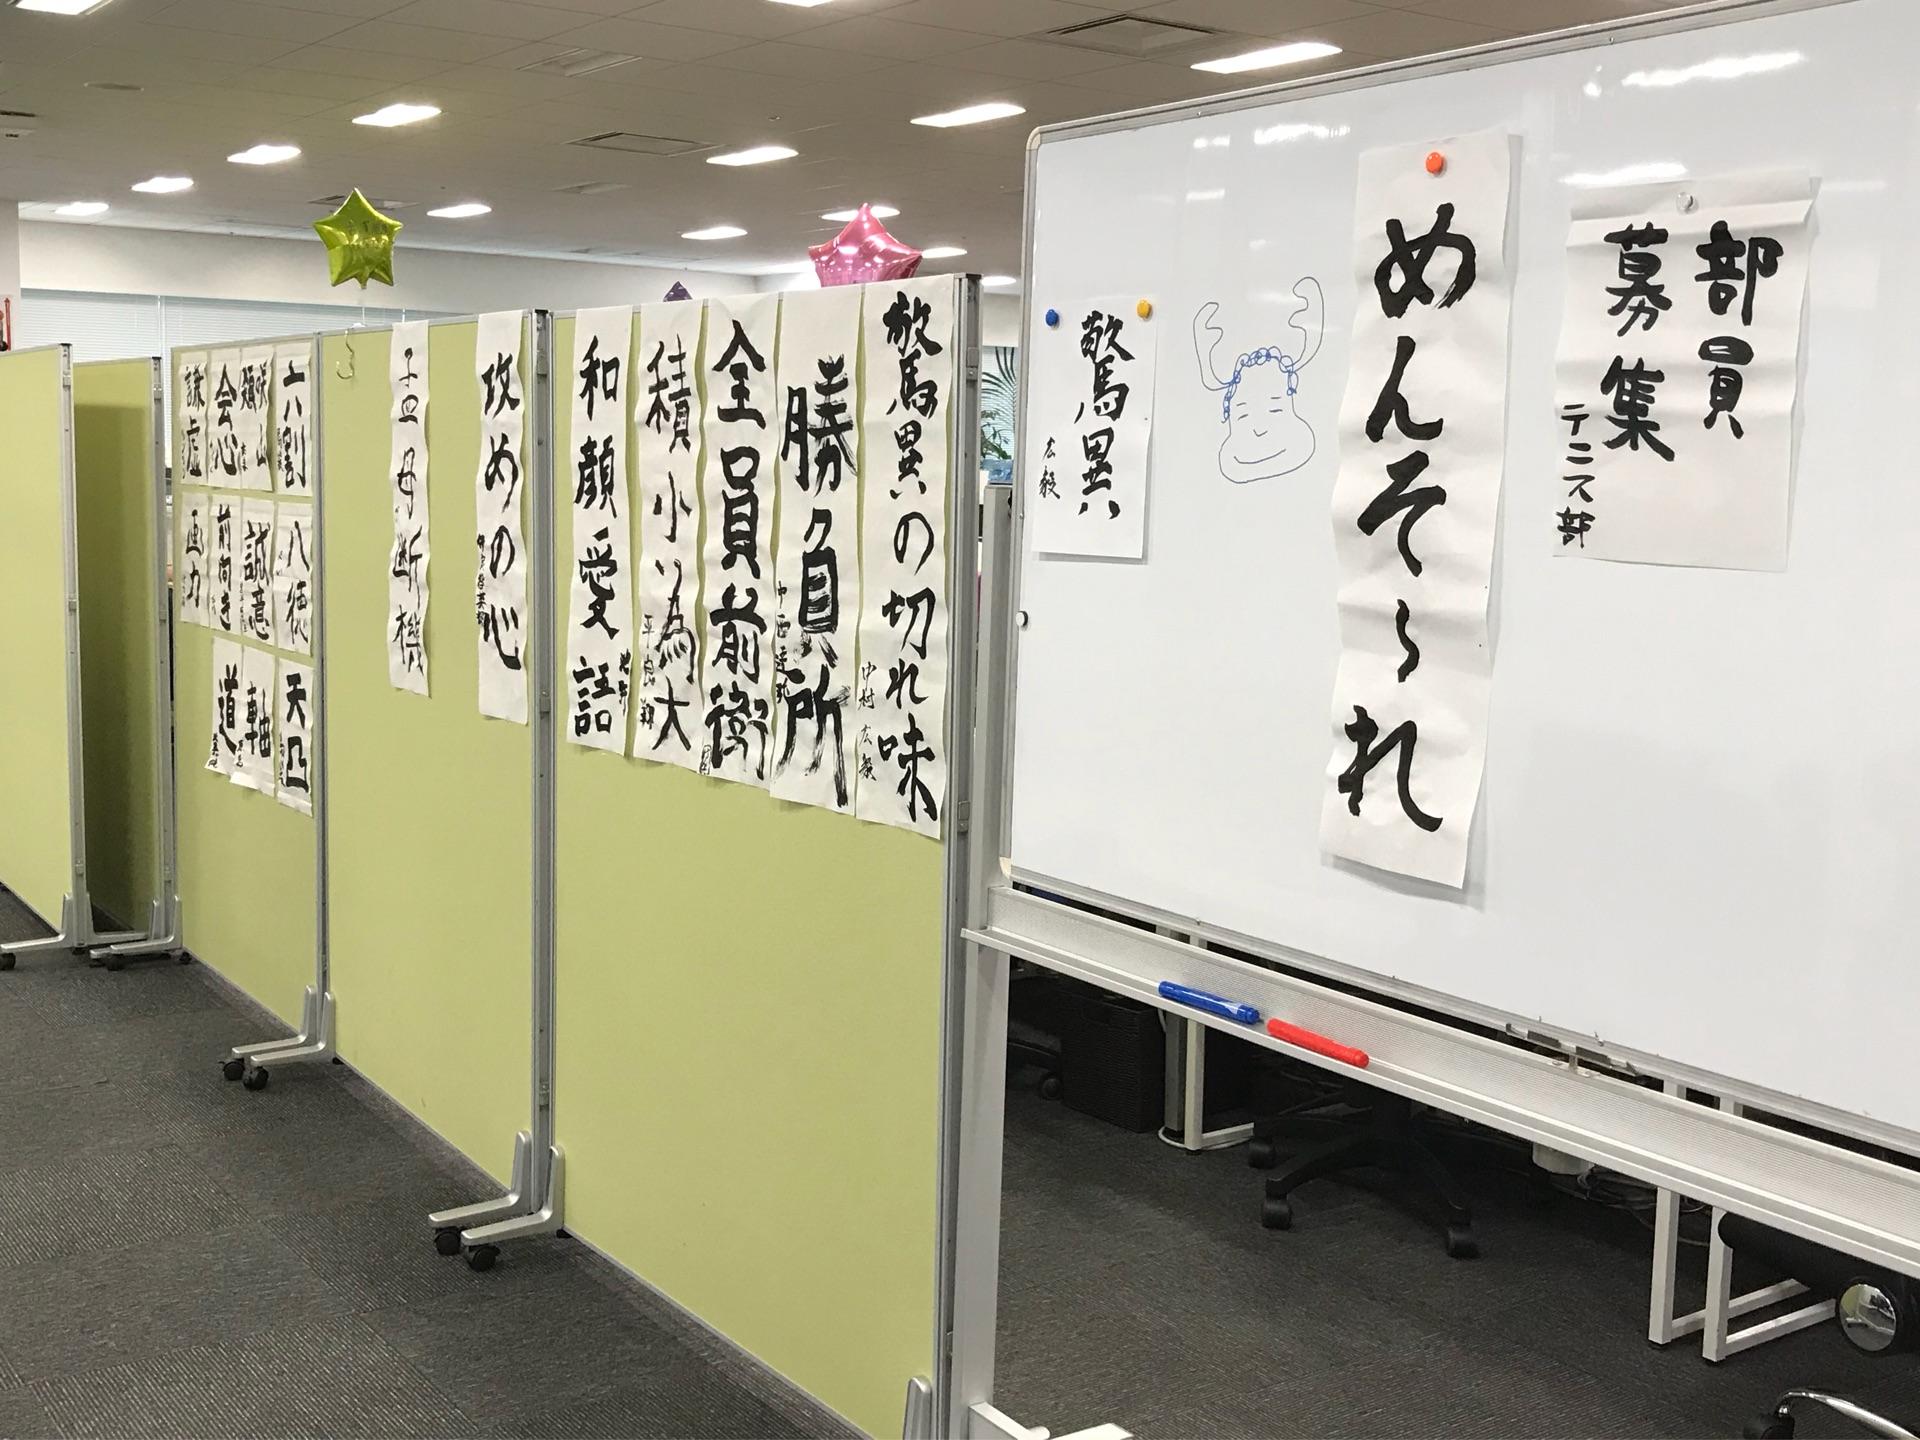 部員
募集
テニス部
めんそ〜れ
驚異
広毅
驚異の切れ味
中村広毅
勝負所
全員前衛
積小為大
平良 翔
和顔愛語
攻めの心
孟母断機
六割
会心
謙虚
八徳
誠意
前向き
画力
天凸
軸
道